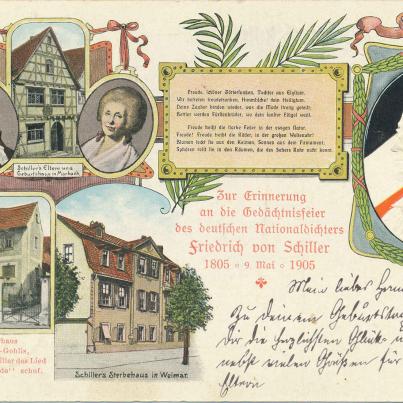 Schiller's Eltern und
Geburtshaus in Marbach.
Freude, schöner Götterfunken, Tochter aus Elysium,
Wir betreten feuertrunken, Himmlische! dein Heiligtum.
Deine Zauber binden wieder, was die Mode streng geteilt;
Bettler werden Fürstenbrüder, wo dein sanfter Flügel weilt.
Freude heißt die starke Feder in der ewigen Natur.
Freude! Freude treibt die Räder, in der großen Weltenuhr!
Blumen lockt sie aus den Keimen, Sonnen aus dem Firmament,
Sphären rollt sie in den Räumen, die des Sehers Rohr nicht kennt.
Zur Erinnerung
an die Gedächtnisfeier
des deutschen Nationaldichters
Friedrich von Schiller
1805 • 9 Mai • 1905
haus
-Gohlis,
iller das Lied
de" schuf.
Schiller's Sterbehaus in Weimar.
Mein lieber
Zu deinem Geburtsta
Dir die herzlichsten Glück-
nebst vielen Grüßen für
Eltern